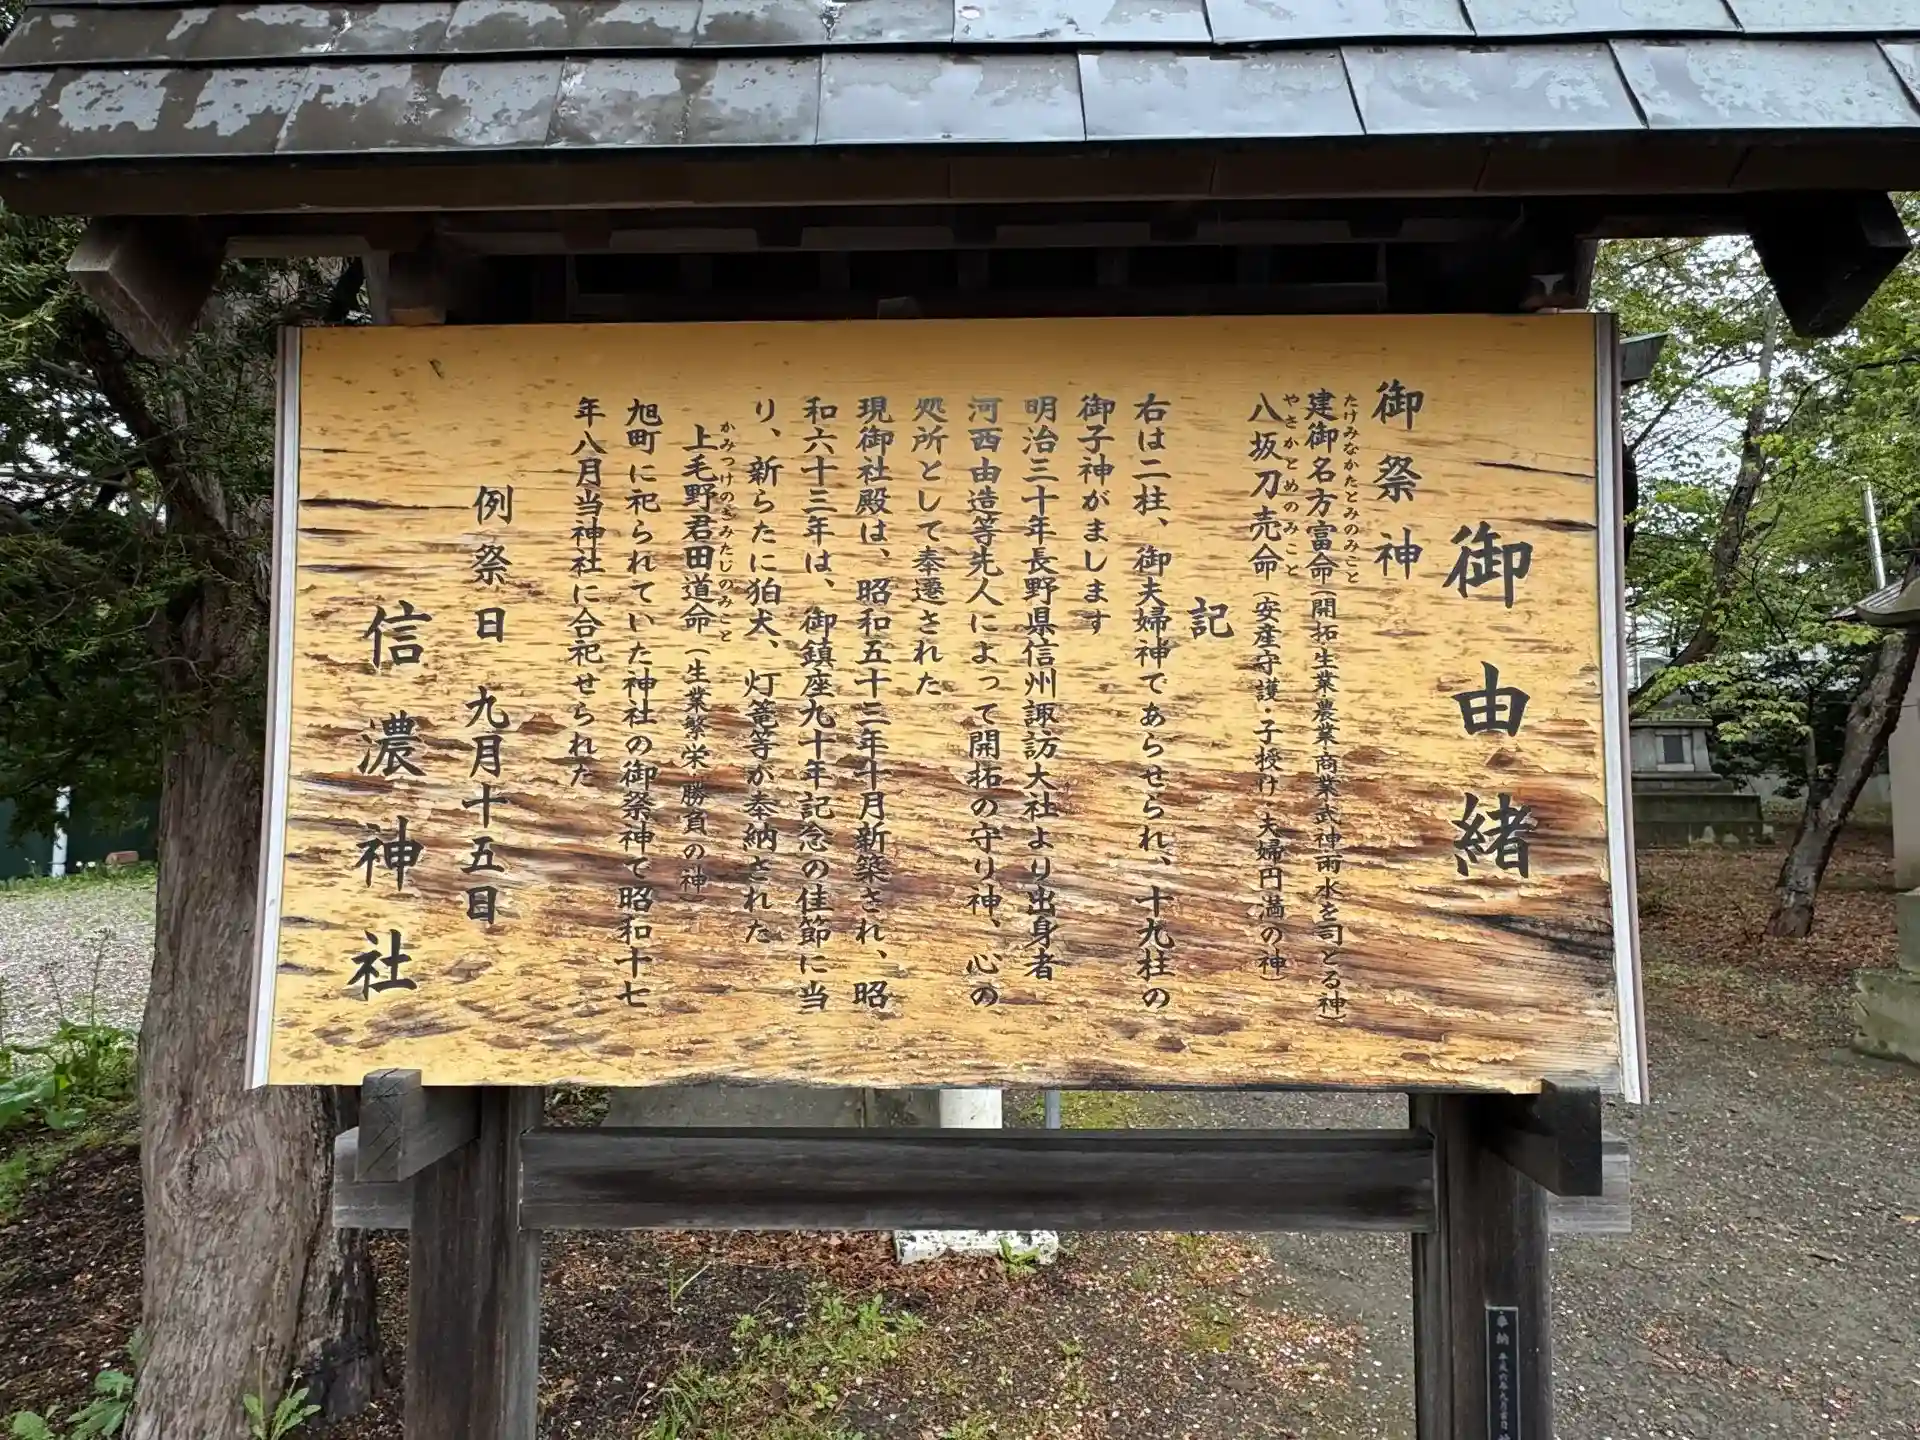 御由緒
御祭神
建御名方富命(開拓生業農業商業武神雨水を司とる神)
たけみなかたとみのみこと
八坂刀売命(安産守護 子授け 夫婦円満の神)
やさかとめのみこと
記
右は二柱、御夫婦神であらせられ、十九柱の
御子神がまします
明治三十年長野県信州諏訪大社より出身者
河西由造等先人によって開拓の守り神、心の
処所として奉遷された
現御社殿は、昭和五十三年十月新築され、昭
和六十三年は、御鎮座九十年記念の佳節に当
り、新らたに狛犬、灯篭等が奉納された
上毛野君田道命(生業繁栄 勝負の神)
かみつけのきみたじのみこと
旭町に祀られていた神社の御祭神で昭和十七
年八月当神社に合祀せられた
例祭日 九月十五日
信濃神社
奉納